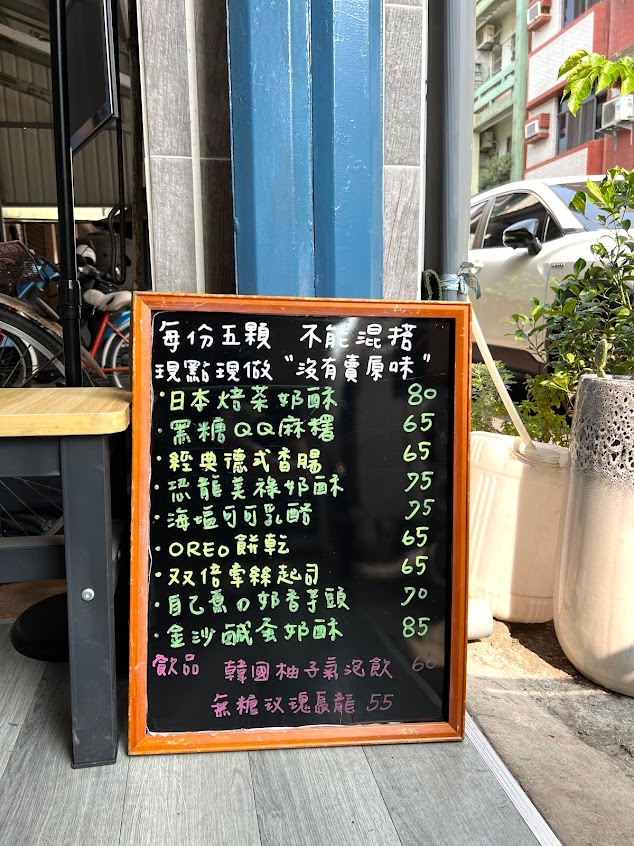 每份五顆 不能混搭
現點現做 "沒有賣原味"
·日本焙茶奶酥 80
·黑糖QQ麻糬 65
·經典德式香腸 65
·恐龍美祿奶酥 75
·海塩可可乳酪 75
·OREO餅乾 65
·双倍牽絲起司 65
·自己煮の奶香芋頭 70
·金沙鹹蛋奶酥 85
飲品 韓國柚子氣泡飲 60
無糖玫瑰烏龍 55